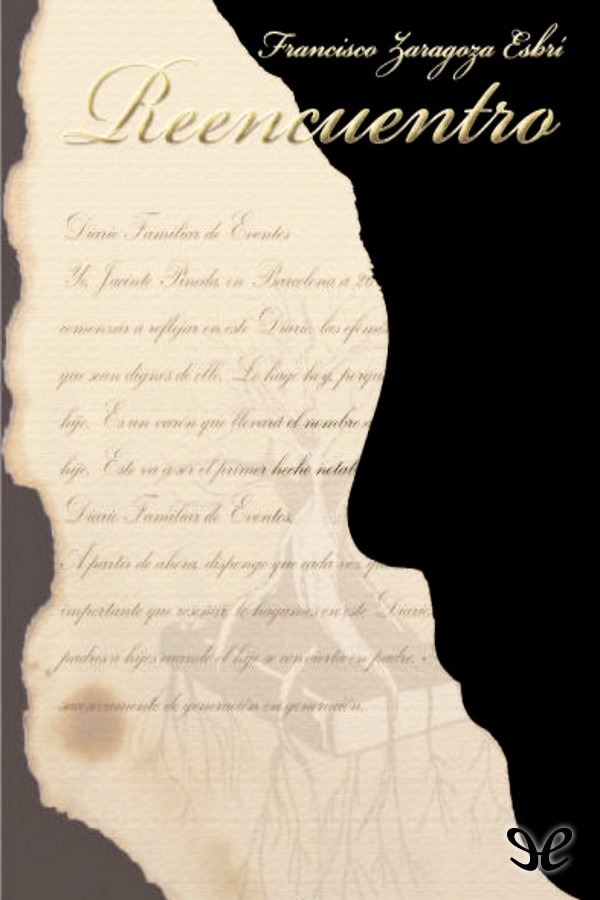 Francisco Zaragoza Esbrí
Reencuentro
Diario Familiar de Eventos
Yo, Jacinto Pineda, en Barcelona a 26
comenzar a reflejar en este Diario, las efemé
que sean dignas de ello. Lo hago hoy, porque
hijo. Es un varón que llevará el nombre
hijo. Este va a ser el primer hecho notab
Diario Familiar de Eventos.
A partir de ahora, dispongo que cada vez que
importante que reseñar, lo hagamos en este Diario,
padres a hijos cuando el hijo se convierta en padre.
sucesivamente de generación en generación.